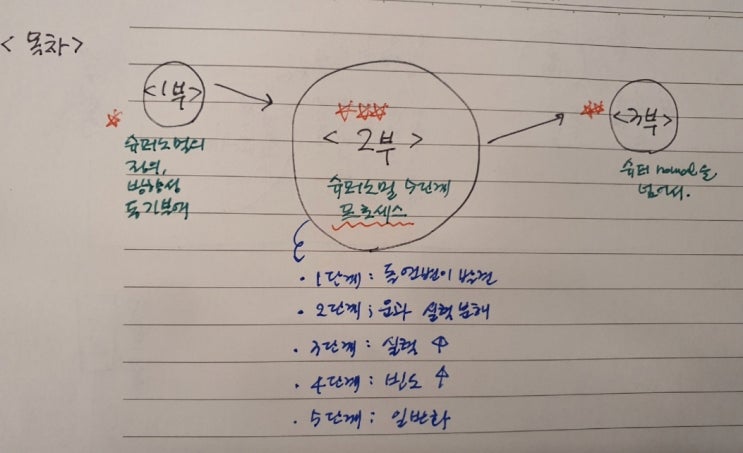 <목차>
<1부>
슈퍼노멀의
정의,
방향성
동기부여
<2부>
슈퍼노멀 5단계
프로세스
<3부>
슈퍼 normal을
넘어서.
· 1단계 : 돌연변이 발견
· 2단계 ; 운과 실력 분해
· 3단계 : 실력 ↑
· 4단계 : 빈도 ↑
· 5단계 : 일반화